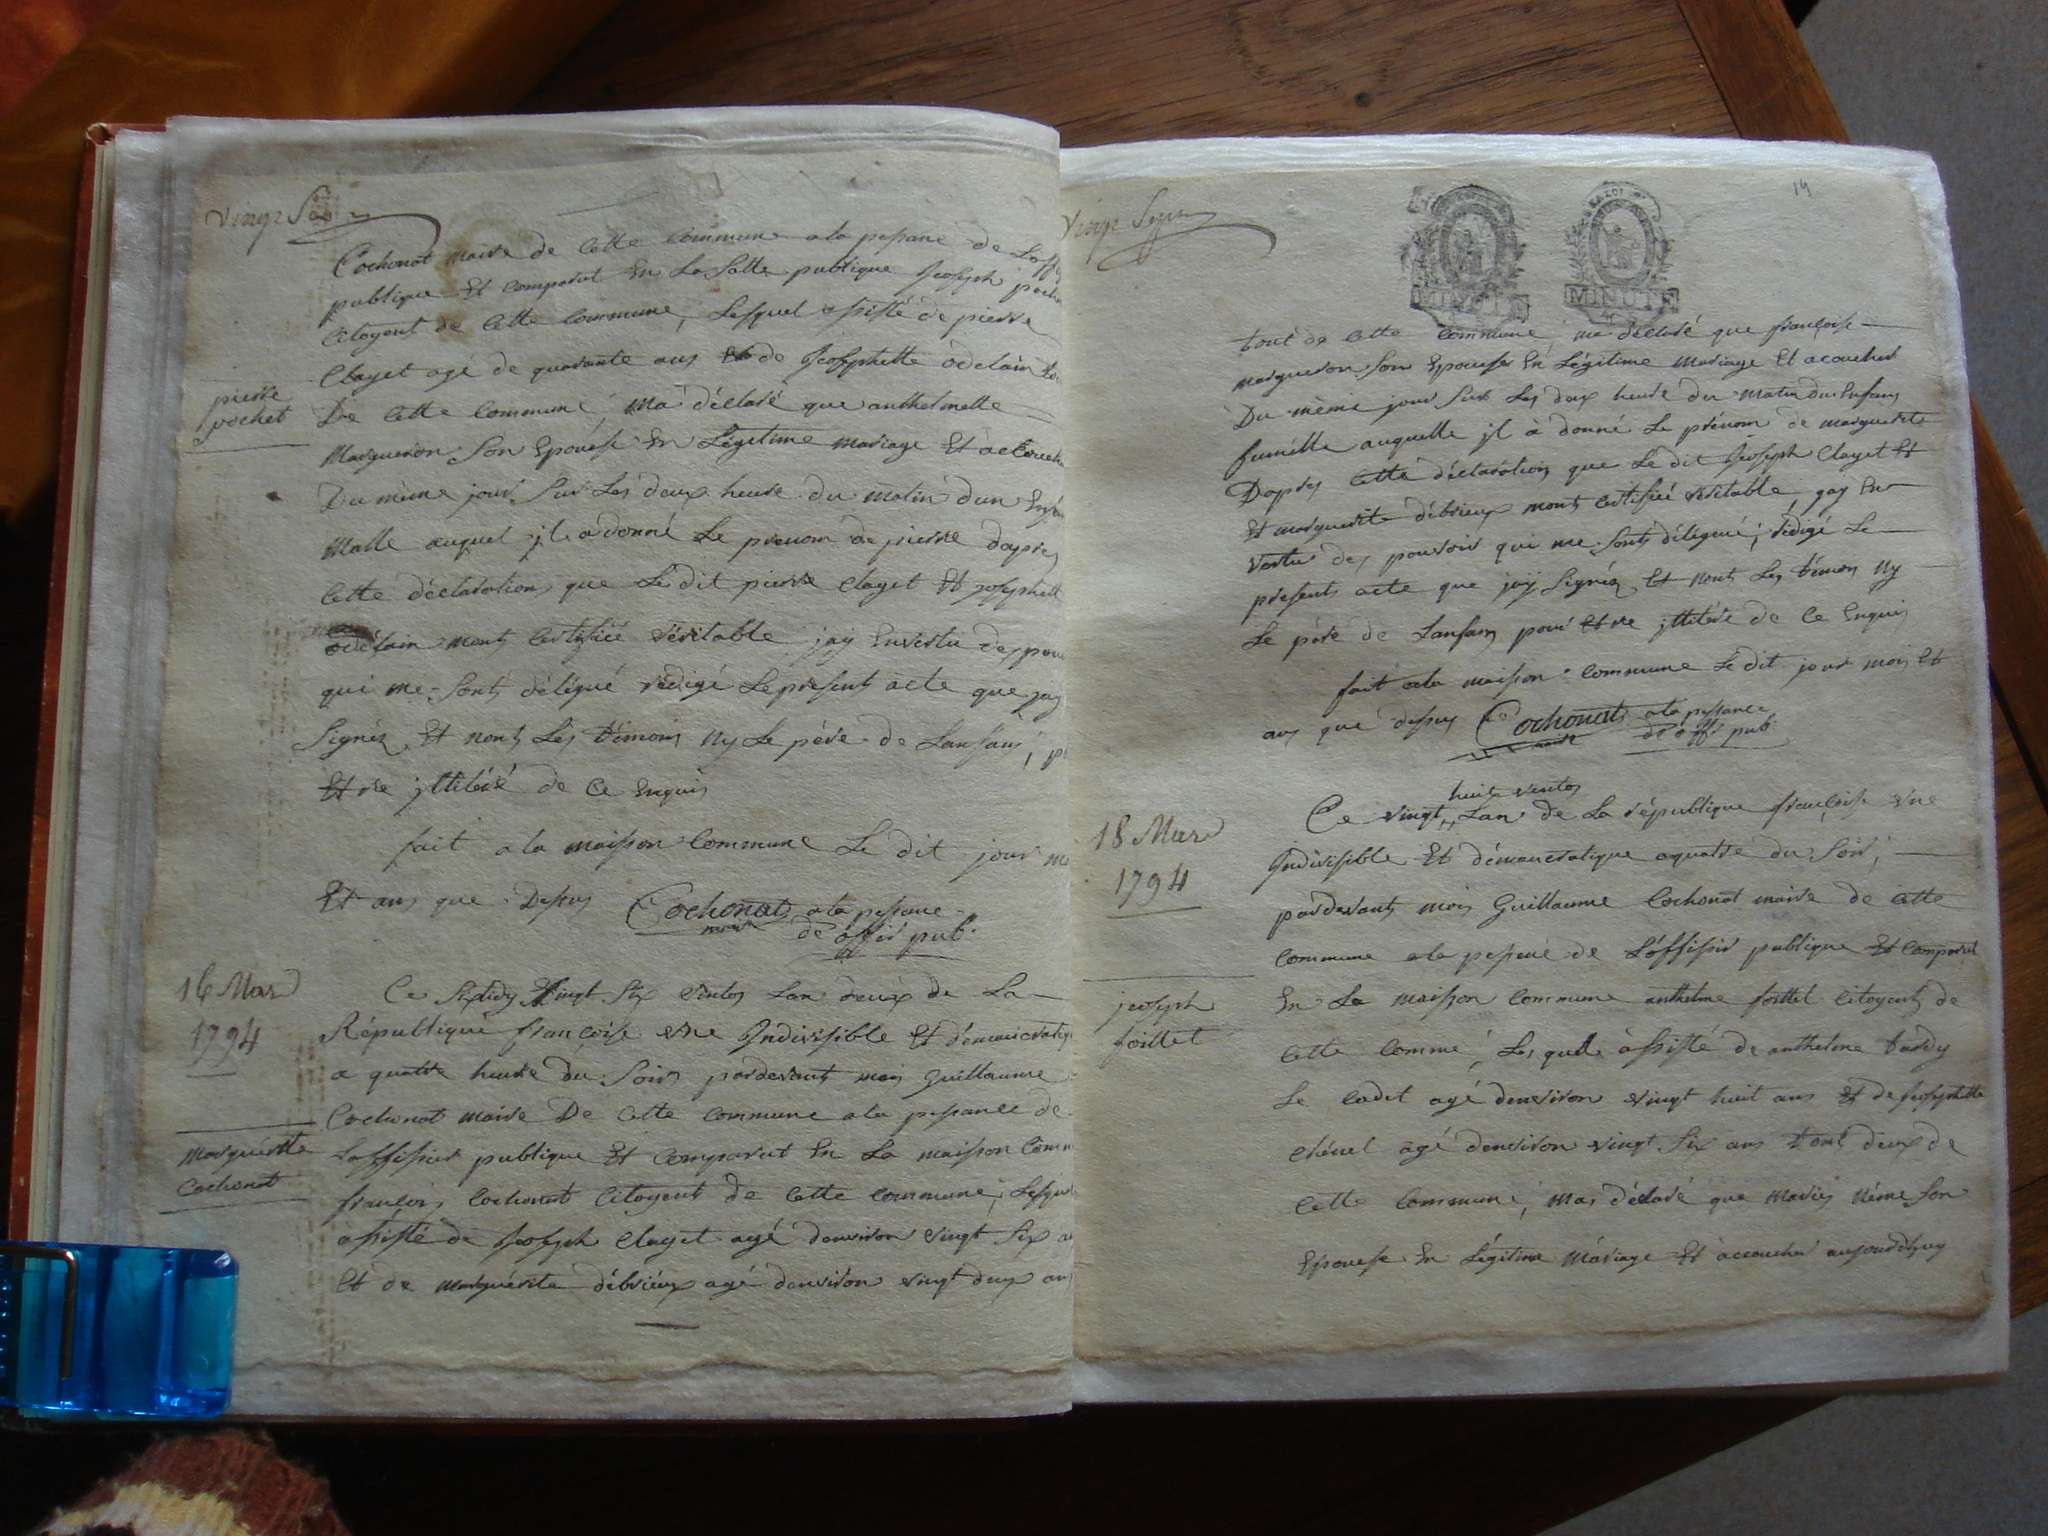 vingt Six
Cochonat maire de Cette Commune a la pessance de Loffi
publique Et comparut En La Salle publique Jeosyph poch
Citoyent de Cette Commune, Lesquel assisté de pierre
Clayet age de quarante ans Et de Jeosyphette odelain
De Cette Commune, ma déclaré que anthelmette
Margueron Son Epouesse En Légetime mariage Et accouch
Du même jour Sur Les deux heure du matin dun Enf
Malle auquel jl a donné Le prenom de pierre dapres
Cette déclarations que Le dit pierre Clayet Et
odelain mont Certifiée Véritable jay Envertu des pou
qui me Sont délégué redigé Le present acte que jay
Signéz Et nont Les témoins Ny Le pére de Lanfans, p
Etre jllitéré de Ce Enquis
fait a la maison Commune Le dit jour m
Et ans que Depus Cochonat a la pessane
maire de offis pub.
pierre
pochet
16 Mar
1794
Ce Sixtidy Vingt Six Ventos Lan deux de La
République françoise vne Jndivisible Et démoucratiq
a quatre heure du Soir pardevant moi Guillaume
Cochonat maire De Cette Commune a la pessance de
Loffisier publique Et comparut En La maison Comm
françois Cochonat Citoyent de Cette Commune, Lesqu
assisté de Jeosyph Clayet agé denviron vingt Six a
Et de Marguérite débrieux agé denviron vingt deux ans
Marguéritte
Cochonat
vingt Sept
14
MINUTE
MINUTE
tout de Cette Commune, ma déclaré que françoise
margueron Son Epouesse En Légitime mariage Et acouchéé
Du même jour Sur Les deux heure du matin dun Enfans
fumélle auquelle jl à donné Le prénom de marguerite
Dapres Cette déclaration que Le dit Jeosyph Clayet Et
Et marguerite débrieux mont Certifiée véritable, jay En
vertu des pouvoir qui me Sont délégué; redigé Le
presents acte que jay Signéz Et nont Les témoin Ny
Le pére de Lanfans pour Etre jllitéré de Ce Enquis
fait a la maison Commune Le dit jour mois Et
ans que depus Cochonat a la pessance
maire de offi pub
18 Mar
1794
huit ventos
Ce vingt,, Lan de La république françoise vne
Jndivisible Et démoucratique a quatre du Soir,
pardevant mois Guillaume Cochonat maire de Cette
Commune a la pessence de Loffisir publique Et Comparut
En La maison Commune anthelme foillet Citoyents de
Cette Commé, Les quelle assisté de anthelme tardy
Le Cadet agé denviron vingt huit ans Et de Jeosyphette
Chénel agé denviron vingt Six ans tout deux de
Cette Commune, mas déclaré que Maries Néme Son
Epouesse En Légitime Mariage Et accouchéé aujourdhuy
jeosyph
foillet